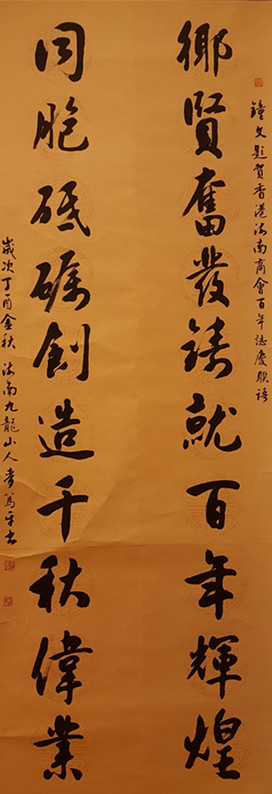 鐘文題賀香港海南商會百年誌慶聯語
鄉賢奮發鑄就百年輝煌
同胞砥礪創造千秋偉業
歲次丁酉金秋 海南九龍山人李篤平書